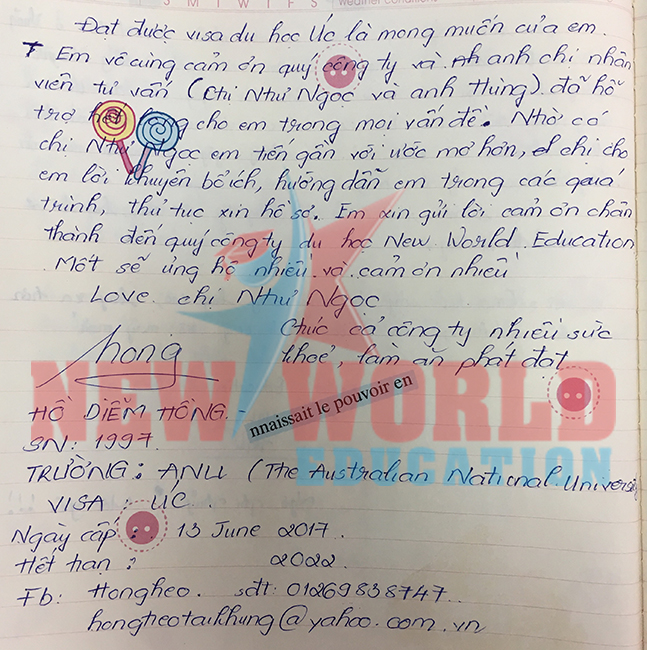 S M T W T F S weather conditions
Đạt được visa du học Úc là mong muốn của em.
Em vô cùng cảm ơn quý công ty và anh chị nhân
viên tư vấn (Chị Như Ngọc và anh Hùng) đã hỗ
trợ cho em trong mọi vấn đề. Nhờ có
chị Như Ngọc em tiến gần với ước mơ hơn, chị cho
em lời khuyên bổ ích, hướng dẫn em trong các quá
trình, thủ tục xin hồ sơ. Em xin gửi lời cảm ơn chân
thành đến quý công ty du học New World Education
Một sẽ ủng hộ nhiều và cảm ơn nhiều
Love chị Như Ngọc
Chúc cả công ty nhiều sức
khoẻ, làm ăn phát đạt
hong
NEW WORLD
EDUCATION
nnaissait le pouvoir en
HỒ DIỄM HỒNG -
SN: 1997
TRƯỜNG: ANU (The Australian National Universi
VISA: ÚC.
Ngày cấp: 13 June 2017.
Hết hạn: 2022.
Fb: Hongheo. sđt: 01269838747
hongheotaikhung@yahoo.com.vn